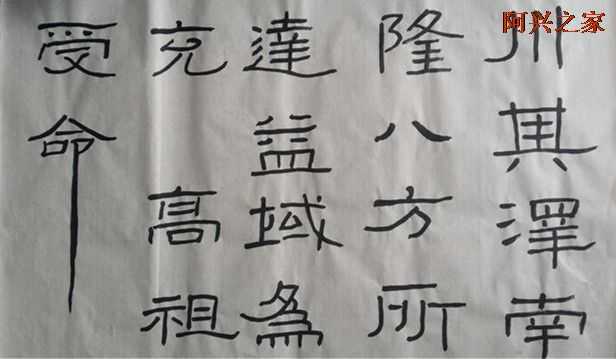 阿兴之家
川其澤南
隆八方所
達益域為
充高祖
受命